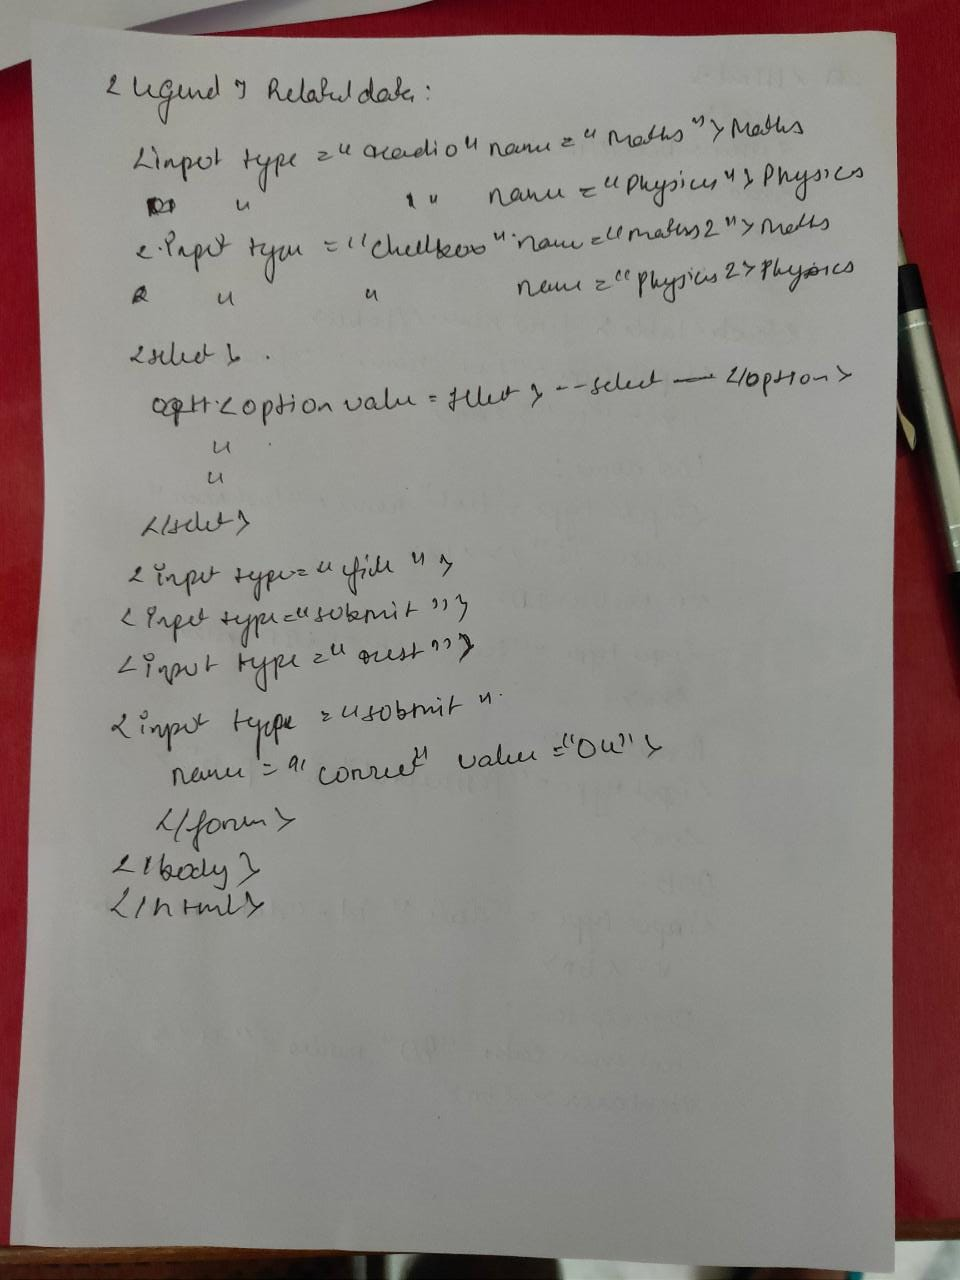 <legend> Related data:
<input type="radio" name="Maths">Maths
" " name="Physics">Physics
<input type="checkbox" name="maths2">Maths
" " name="Physics2>Physics
<select>
<option value=select> --select — </option>
"
"
</select>
<input type="file">
<input type="submit">
<input type="reset">
<input type="submit"
name="correct" value="OK">
</form>
</body>
</html>